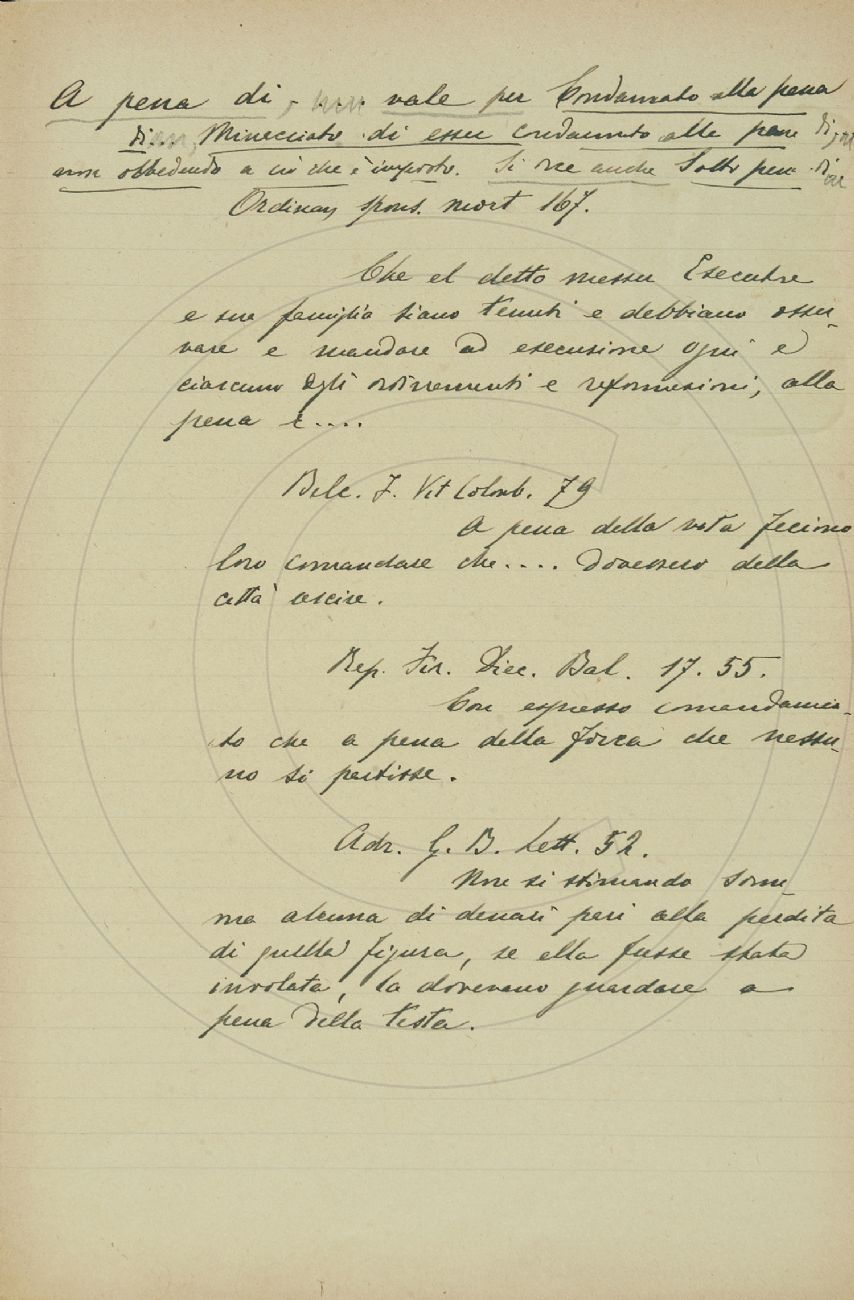 A pena di, .... vale per Condannato alla pena
di, Minacciato di esser condannato alla pena di,
non obbedendo a ciò che è imposto. Si dice anche Sotto pena di
Ordinam spons. mort 167.
Che el detto messer Esecutore
e sua famiglia siano tenuti e debbiano osser-
vare e mandare ad esecusione ogni e
ciascuno degli ordinamenti e reformasioni, alla
pena e....
Belc. F. Vit Colomb. 79
A pena della vita feciono
loro comandare che.... dovessero della
città uscire.
Rep. Fir. Diec. Bal. 17. 55.
Con espresso comandamen-
to che a pena della forca che nessu-
no si partisse.
Adr. G. B. Lett. 52.
Non si stimando som-
ma alcuna di denari pari alla perdita
di quella figura, se ella fusse stata
involata, la dovevano guardare a
pena della testa.